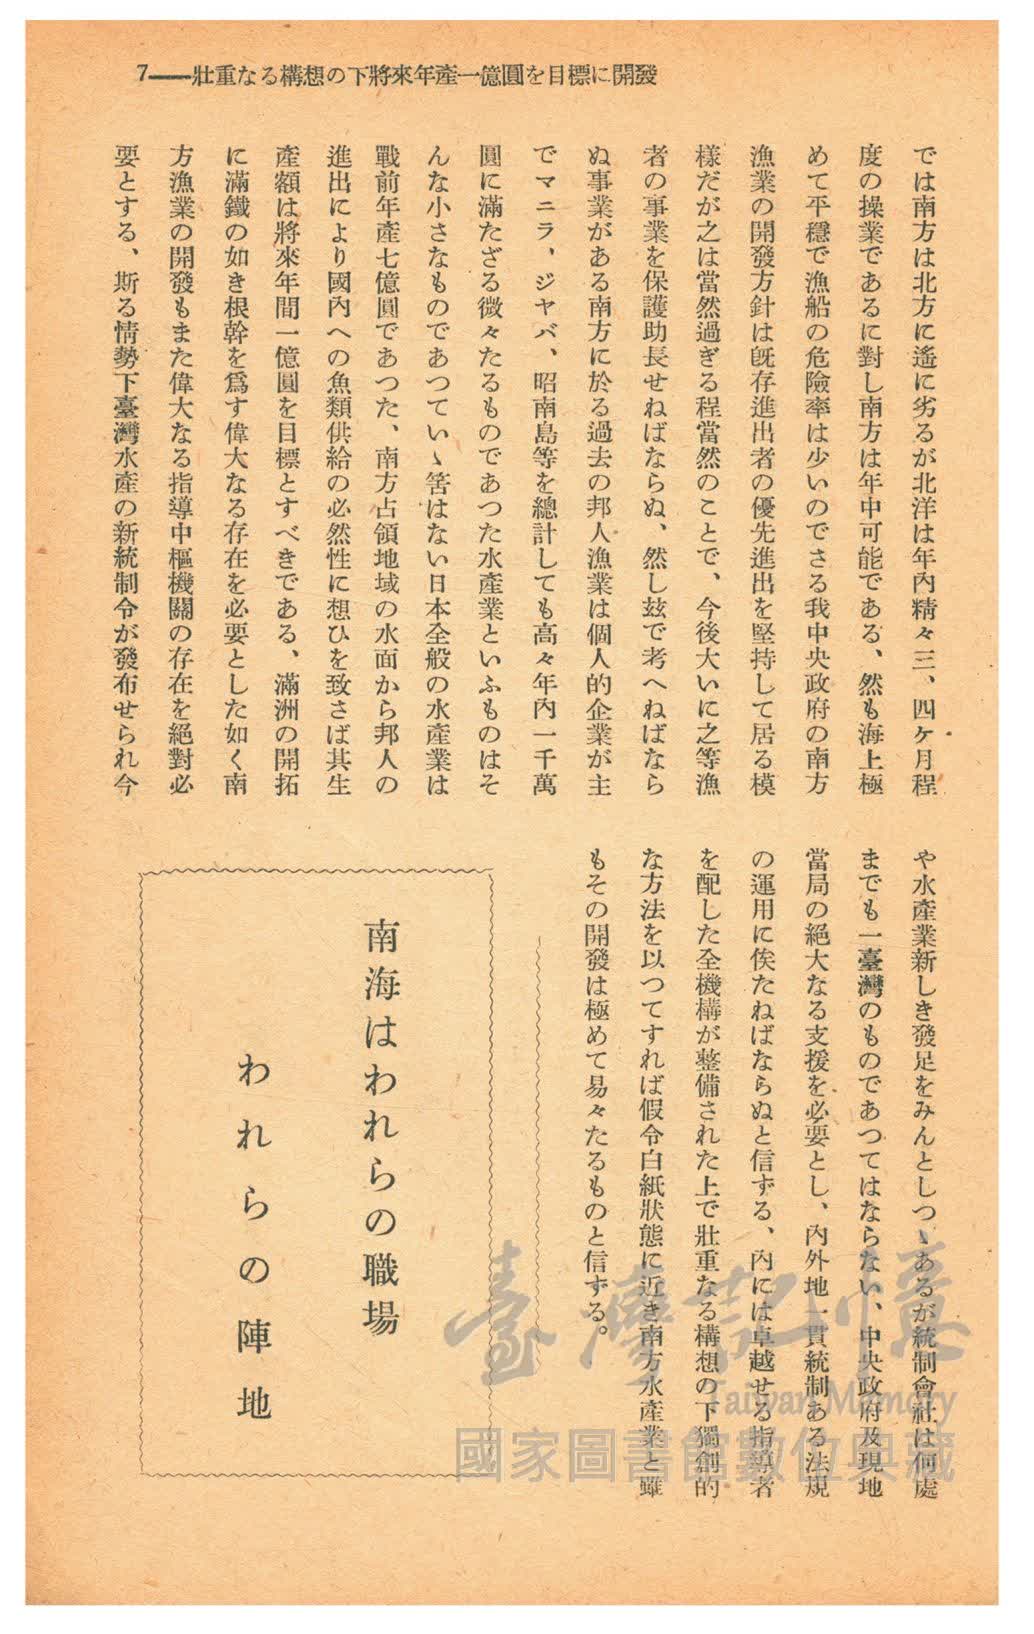 7——壯重なる構想の下將來年產一億圓を目標に開發
では南方は北方に遙に劣るが北洋は年內精々三、四ケ月程
度の操業であるに對し南方は年中可能である、然も海上極
めて平穩で漁船の危險率は少いのでさる我中央政府の南方
漁業の開發方針は旣存進出者の優先進出を堅持して居る模
樣だが之は當然過ぎる程當然のことで、今後大いに之等漁
者の事業を保護助長せねばならぬ、然し玆で考へねばなら
ぬ事業がある南方に於る過去の邦人漁業は個人的企業が主
でマニラ、ジヤバ、昭南島等を總計しても高々年內一千萬
圓に滿たざる微々たるものであつた水產業といふものはそ
んな小さなものであつていゝ筈はない日本全般の水產業は
戰前年產七億圓であつた、南方占領地域の水面から邦人の
進出により國內への魚類供給の必然性に想ひを致さば其生
產額は將來年間一億圓を目標とすべきである、滿洲の開拓
に滿鐵の如き根幹を爲す偉大なる存在を必要とした如く南
方漁業の開發もまた偉大なる指導中樞機關の存在を絕對必
要とする、斯る情勢下臺灣水產の新統制令が發布せられ今
や水產業新しき發足をみんとしつゝあるが統制會社は何處
までも一臺灣のものであつてはならない、中央政府及現地
當局の絕大なる支援を必要とし、內外地一貫統制ある法規
の運用に俟たねばならぬと信ずる、內には卓越せる指導者
を配した全機構が整備された上で壯重なる構想の下獨創的
な方法を以つてすれば假令白紙狀態に近き南方水產業と雖
もその開發は極めて易々たるものと信ずる。
南海はわれらの職場
われらの陣地
臺灣記憶
Taiwan Memory
國家圖書館數位典藏